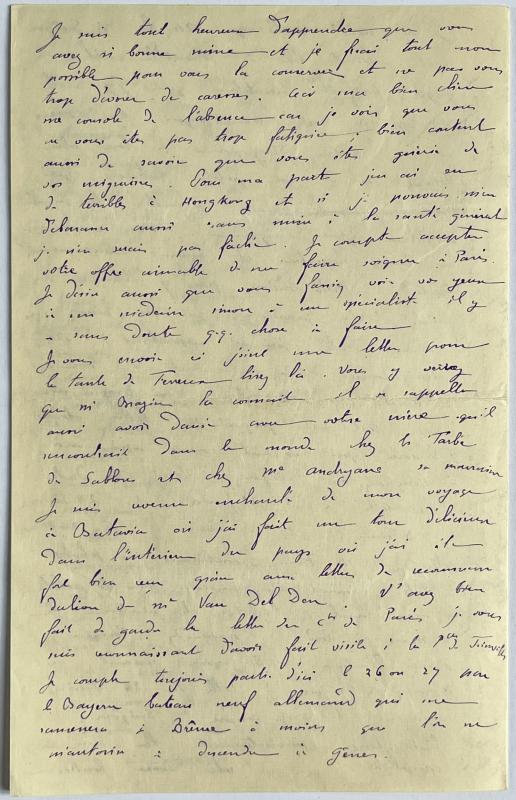 Je suis tout heureux d'apprendre que vous
avez si bonne mine et je ferai tout mon
possible pour vous la conserver et ne pas vous
trop dévorer de caresses. Ceci ma bien chère
me console de l'absence car je vois que vous
ne vous êtes pas trop fatiguée, bien content
aussi de savoir que vous êtes guérie de
vos migraines. Pour ma part j'en ai eu
de terribles à Hongkong et si je pouvais m'en
débarrasser aussi sans nuire à la santé générale
je n'en serais pas fâché. Je compte accepter
votre offre aimable de me faire soigner à Paris.
Je désire aussi que vous fassiez voir vos yeux
à un médecin sinon à un spécialiste il y
a sans doute q.q. chose à faire
Je vous envoie ci joint une lettre pour
la tante de lisez la. Vous y verrez
que Mr la connait il se rappelle
aussi avoir dansé avec votre mère qu'il
rencontrait dans le monde chez les Tarbé
de Sablons et chez Me Andryane sa marraine
Je suis revenu enchanté de mon voyage
à Batavia où j'ai fait un tour délicieux
dans l'intérieur du pays où j'ai été
fort bien reçu grâce aux lettres de recomman
dation de Mr Van Del Den. V' avez bien
fait de garder la lettre du Cte de Paris, je vous
suis reconnaissant d'avoir fait visite à la Pcesse de Joinville
Je compte toujours partir d'ici le 26 ou 27 par
le Bayern bateau neuf allemand qui me
ramenera à Brême à moins que l'on ne
m'autorise à descendre à Gênes.